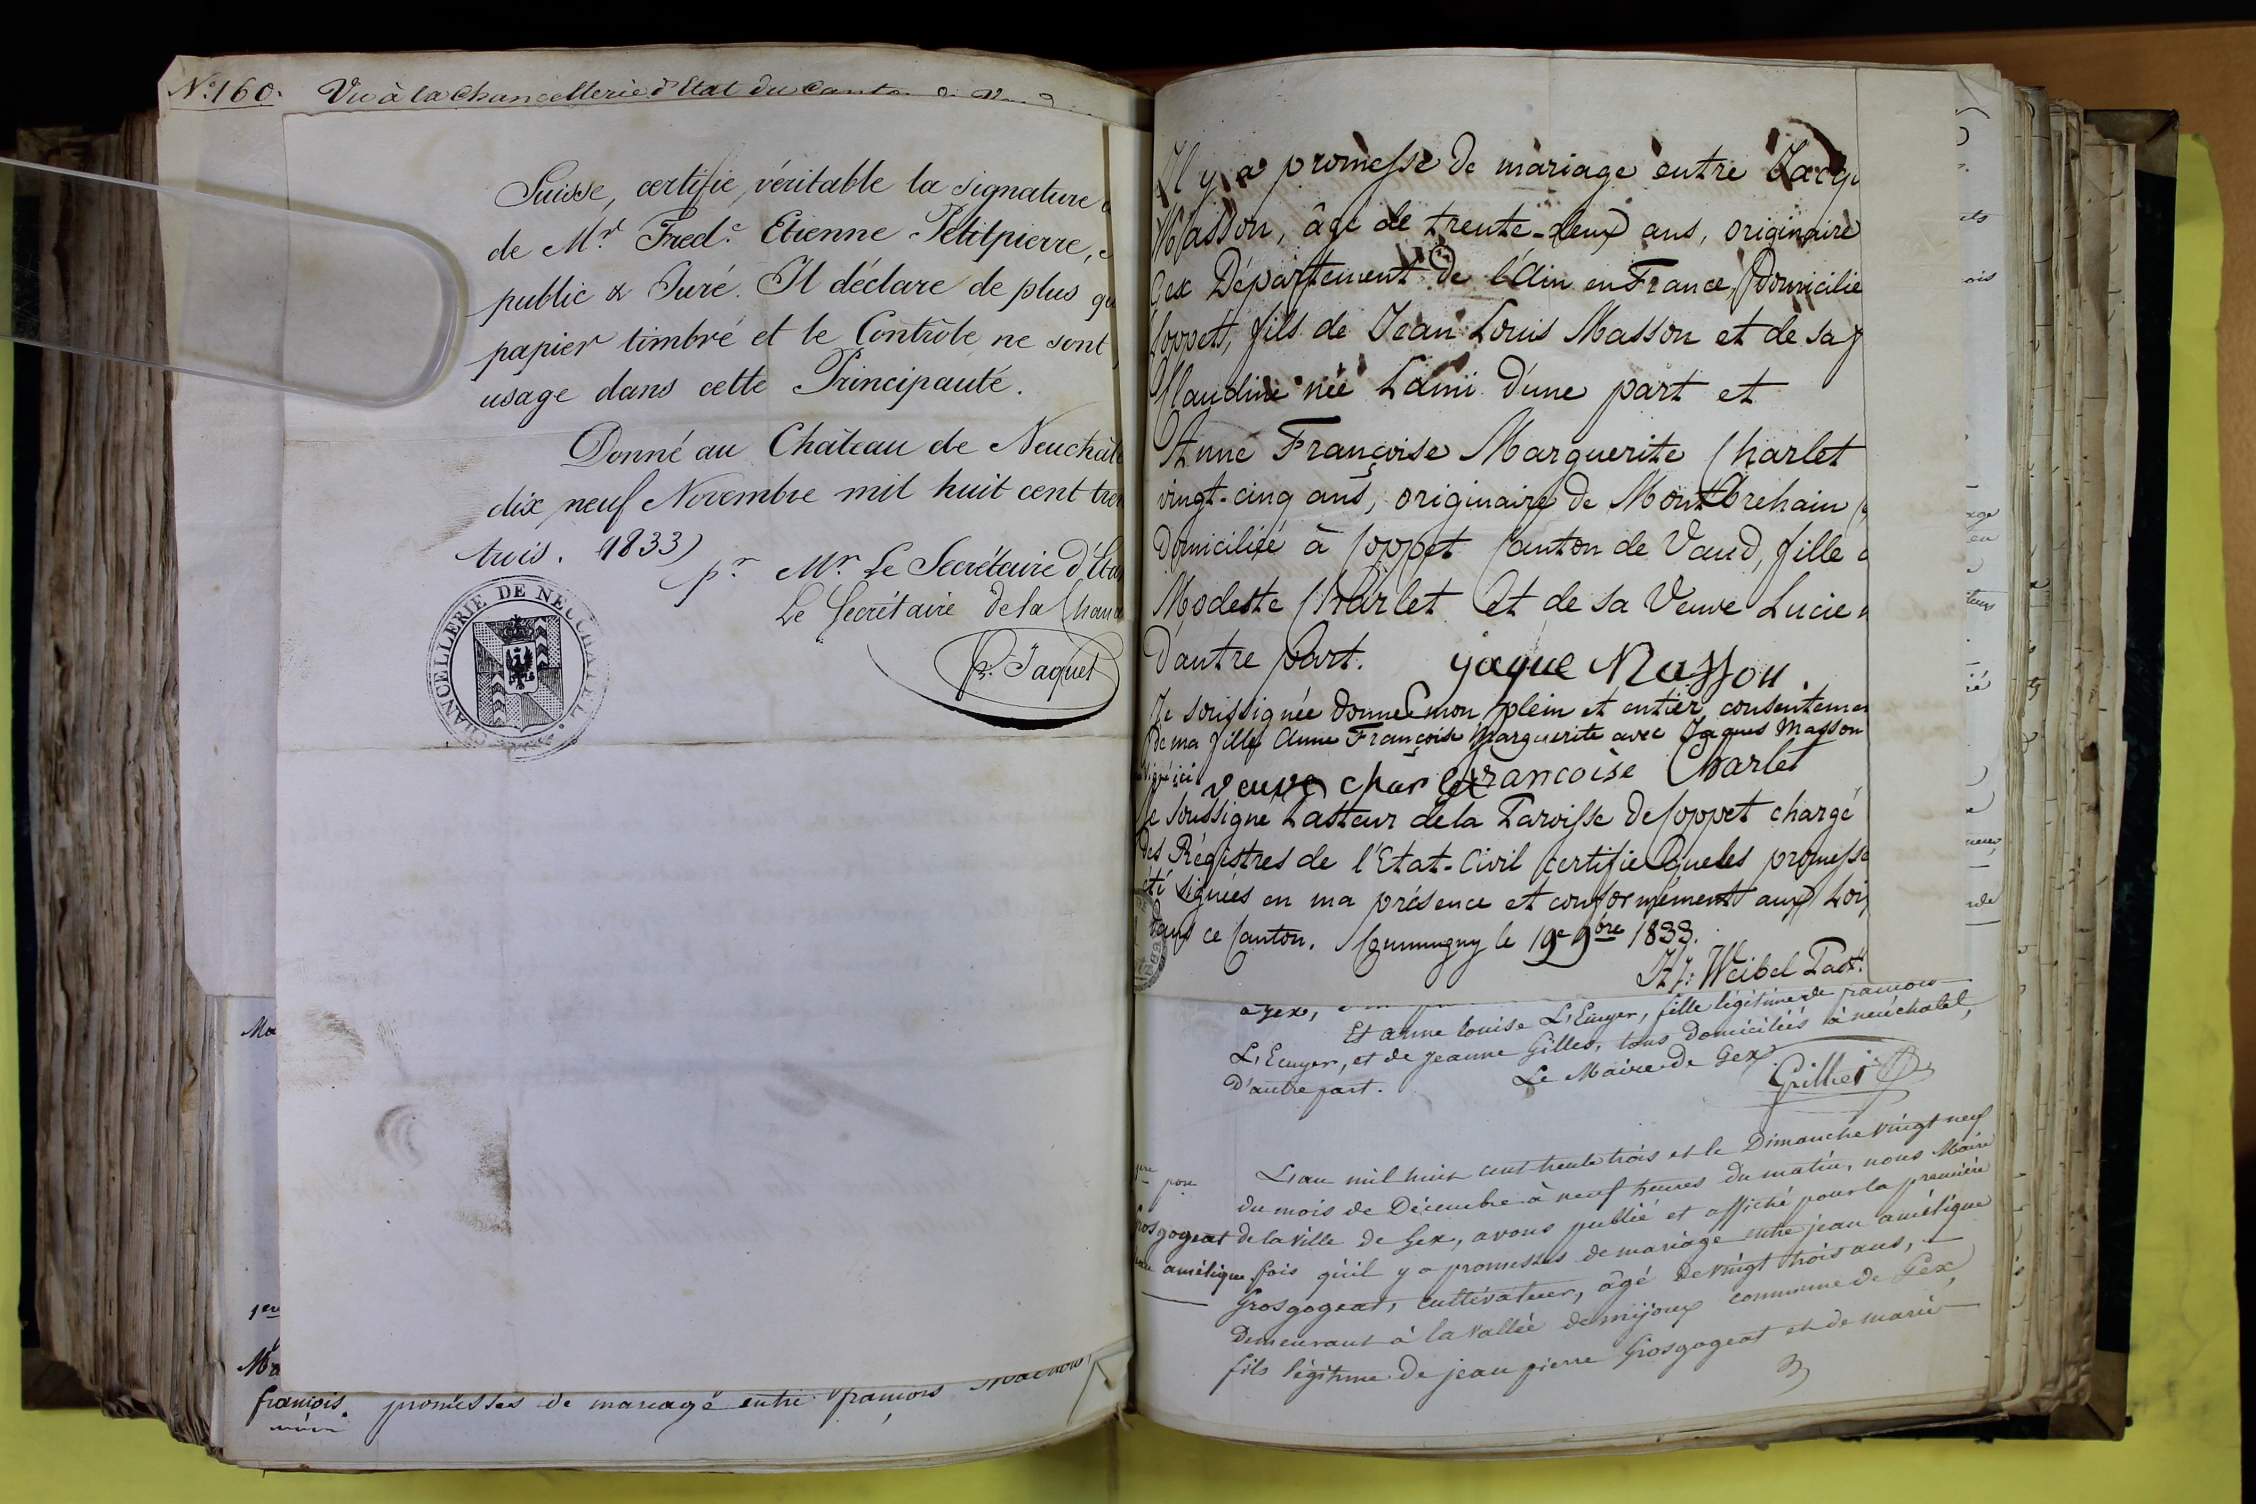 N.º 160. Vu à la Chancellerie d'Etat du Canton
Suisse, certifie véritable la signature
de Mr. Fred.c Etienne Petitpierre,
public & Juré. Il déclare de plus
papier timbré et le Contrôle ne sont
usage dans cette Principauté.
Donné au Château de Neuchâte
dix neuf Novembre mil huit cent tren
trois. (1833)
pr. Mr. Le Secrétaire d'Eta
Le Secrétaire de la Chan
Jaquet
CHANCELLERIE DE NEUCHATEL
1er
Ma
françois promesses de mariage entre françois
Il y a promesse de mariage entre Jacq
Masson, âgé de trente-deux ans, originaire
Gex Département de l'Ain en France, Domicilié
Coppet, fils de Jean Louis Masson et de sa
Claudine née Lami d'une part et
Anne Françoise Marguerite Charlet
vingt-cinq ans, originaire de Montbrehain
Domiciliée à Coppet Canton de Vaud, fille
Modeste Charlet et de sa Veuve Lucie
D'autre part. jaque Masson
Je soussignée donne mon plein et entier consenteme
de ma fille Anne Françoise Marguerite avec Jaques Masson
signé ici veuve charlet francoise Charlet
Je soussigné Pasteur de la Paroisse de Coppet chargé
Des Régistres de l'Etat-Civil certifie que les promesse
été signées en ma présence et conformément aux Loix
dans ce Canton. Commugny le 19e 9bre 1833.
Weibel Past.
à Gex,
Et anne louise L'Ecuyer, fille légitime de francois
L'Ecuyer, et de jeanne Gilles, tous domiciliés à neuchatel,
D'autre part. Le Maire de Gex
Grillet
1ere pon L'an mil huit cent trente trois et le Dimanche vingt neuf
du mois de Décembre à neuf heures du matin, nous Maire
Grosgogeat de la ville de Gex, avons publié et affiché pour la première
amélique fois qu'il y a promesses de mariage entre jean amélique
Grosgogeat, cultivateur, âgé de vingt trois ans,
Demeurant à la vallée de mijoux commune de Gex,
fils légitime de jean pierre Grosgogeat et de marie